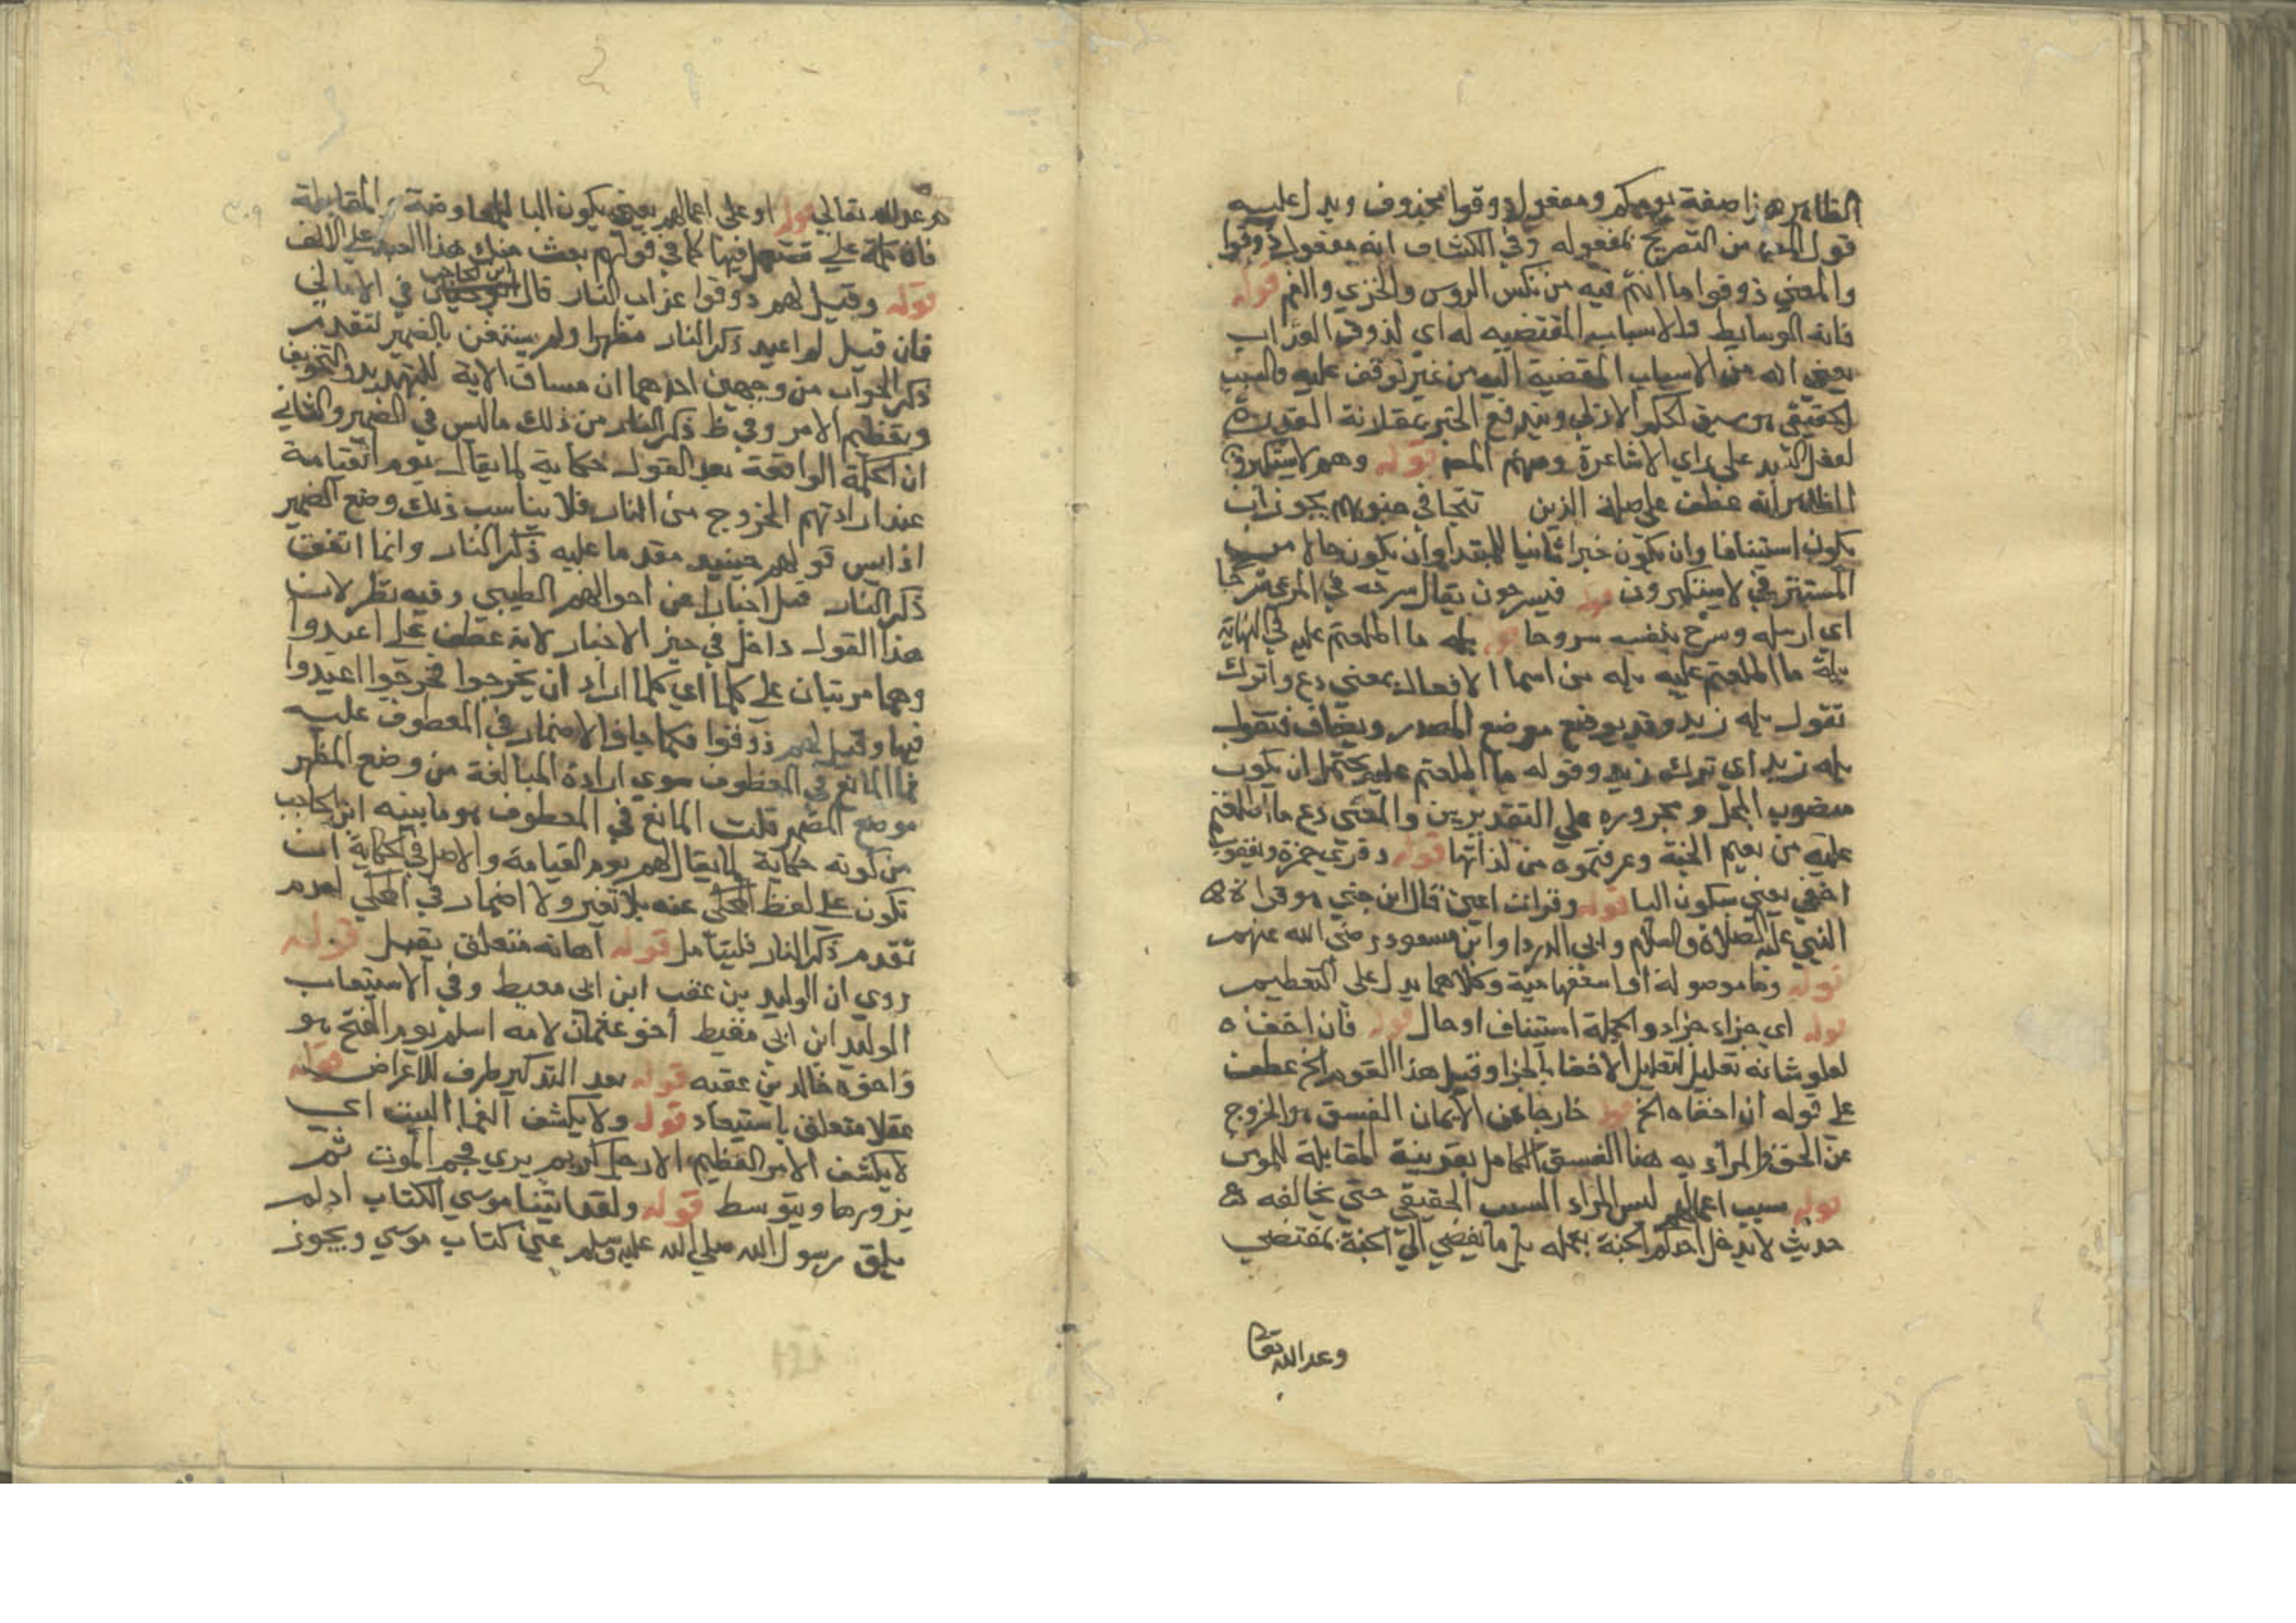 الظاهر هذا صفة يومكم ومفعول ذوقوا محذوف ويدل عليه
قول المص من التصريح بمفعوله وفي الكشاف انه مفعول ذوقوا
والمعني ذوقوا ما انتم فيه من نكس الروس والخزي والغم قوله
فانه الوسايط والاسباب المقتضيه له اي لذوق العذاب
يعني انه من الاسباب المفضية اليه من غير توقف عليه والسبب
الحقيقي هو سبق الحكم الازلي ويندفع الجبر بمقارنة القدرة
لفعل العبد علي راي الاشاعرة ومنهم المص قوله وهم لا يستكبرون
الظاهر انه عطف علي صلة الذين تتجافي جنوبهم يجوز ان
يكون استينافا وان يكون خبرا ثانيا للمبتدا وان يكون حالا من
المستتر في لا يستكبرون قوله فيسرحون يقال سرحه في المرعي سرحا
اي ارسله وسرح بنفسه سروحا قوله بله ما اطلعتم عليه في النهاية
بله ما اطلعتم عليه بله من اسما الافعال بمعني دع واترك
تقول بله زيد وقد يوضع موضع المصدر ويضاف فتقول
بله زيد اي ترك زيد وقوله ما اطلعتم عليه يحتمل ان يكون
منصوب المحل ومجروره علي التقديرين والمعني دع ما اطلعتم
عليه من نعيم الجنة وعرفتموه من لذاتها قوله وقري حمزة ويعقوب
اخفي يعني بسكون اليا قوله وقرات اعين قال ابن جني هو قراة
النبي عليه الصلاة والسلام وابي الدردا وابن مسعود رضي الله عنهم
قوله وما موصولة او استفهامية وكلاهما يدل علي التعظيم
قوله اي جزاء جزاء والجملة استيناف او حال قوله فان اخفاه
لعلو شانه تعليل لتعليل الاخفا بالجزا وقيل هذا القوم الخ عطف
علي قوله ان اخفاه الخ قوله خارجا عن الايمان الفسق هو الخروج
عن الحق والمراد به هنا الفسق الكامل بقرينة المقابلة للمومن
قوله سبب اعمالهم ليس المراد السبب الحقيقي حتي يخالفه
حديث لا يدخل احدكم الجنة بعمله بل ما يفضي الي الجنة بمقتضي
وعد الله تعا
وعد الله تعالي قوله او علي اعمالهم يعني يكون البا للمعاوضة والمقابلة
فان كلمة علي تستعمل فيها كما في قولهم بعت منك هذا العبد علي الالف
قوله وقيل لهم ذوقوا عذاب النار قال ابن الحاجب في الامالي
فان قيل لم اعيد ذكر النار مظهرا ولم يستغن بالضمير لتقدم
ذكر الجواب من وجهين احدهما ان مساق الاية للتهديد والتخويف
وتعظيم الامر وفي ظ ذكر النار من ذلك ما ليس في الضمير والثاني
ان الجملة الواقعة بعد القول حكاية لما يقال يوم القيامة
عند ارادتهم الخروج من النار فلا يناسب ذلك وضع الضمير
اذ ليس قولهم حينيد مقدما عليه ذكر النار وانما اتفق
ذكر النار قبل اخبارا عن احوالهم الطيبي وفيه نظر لان
هذا القول داخل في حيز الاخبار لانه عطف علي اعيدوا
وهما مرتبان علي كلما اي كلما ارادا ان يخرجوا فخرجوا اعيدوا
فيها وقيل لهم ذوقوا فكما جاز الاضمار في المعطوف عليه
فما المانع في المعطوف سوي ارادة المبالغة من وضع المظهر
موضع المضمر قلت المانع في المعطوف هو ما بينه ابن الحاجب
من كونه حكاية لما يقال لهم يوم القيامة والاصل في الحكاية ان
تكون علي لفظ المحكي عنه بلا تغير ولا اضمار في المحكي لعدم
تقدم ذكر النار فليتامل قوله اهانة متعلق بقيل قوله
روي ان الوليد بن عقب ابن ابي معيط وفي الاستيعاب
الوليد ابن ابي معيط اخو عثمان لامه اسلم يوم الفتح هو
واخوه خالد بن عقبه قوله بعد التذكير طرف للاعراض قوله
عقلا متعلق باستبعاد قوله ولا يكشف الغما البيت اي
لا يكشف الامر العظيم الا رجل كريم يري قحم الموت ثم
يزورها ويتوسط قوله ولقد اتينا موسي الكتاب ادلم
يلق رسول الله صلي الله عليه وسلم عين كتاب موسي ويجوز